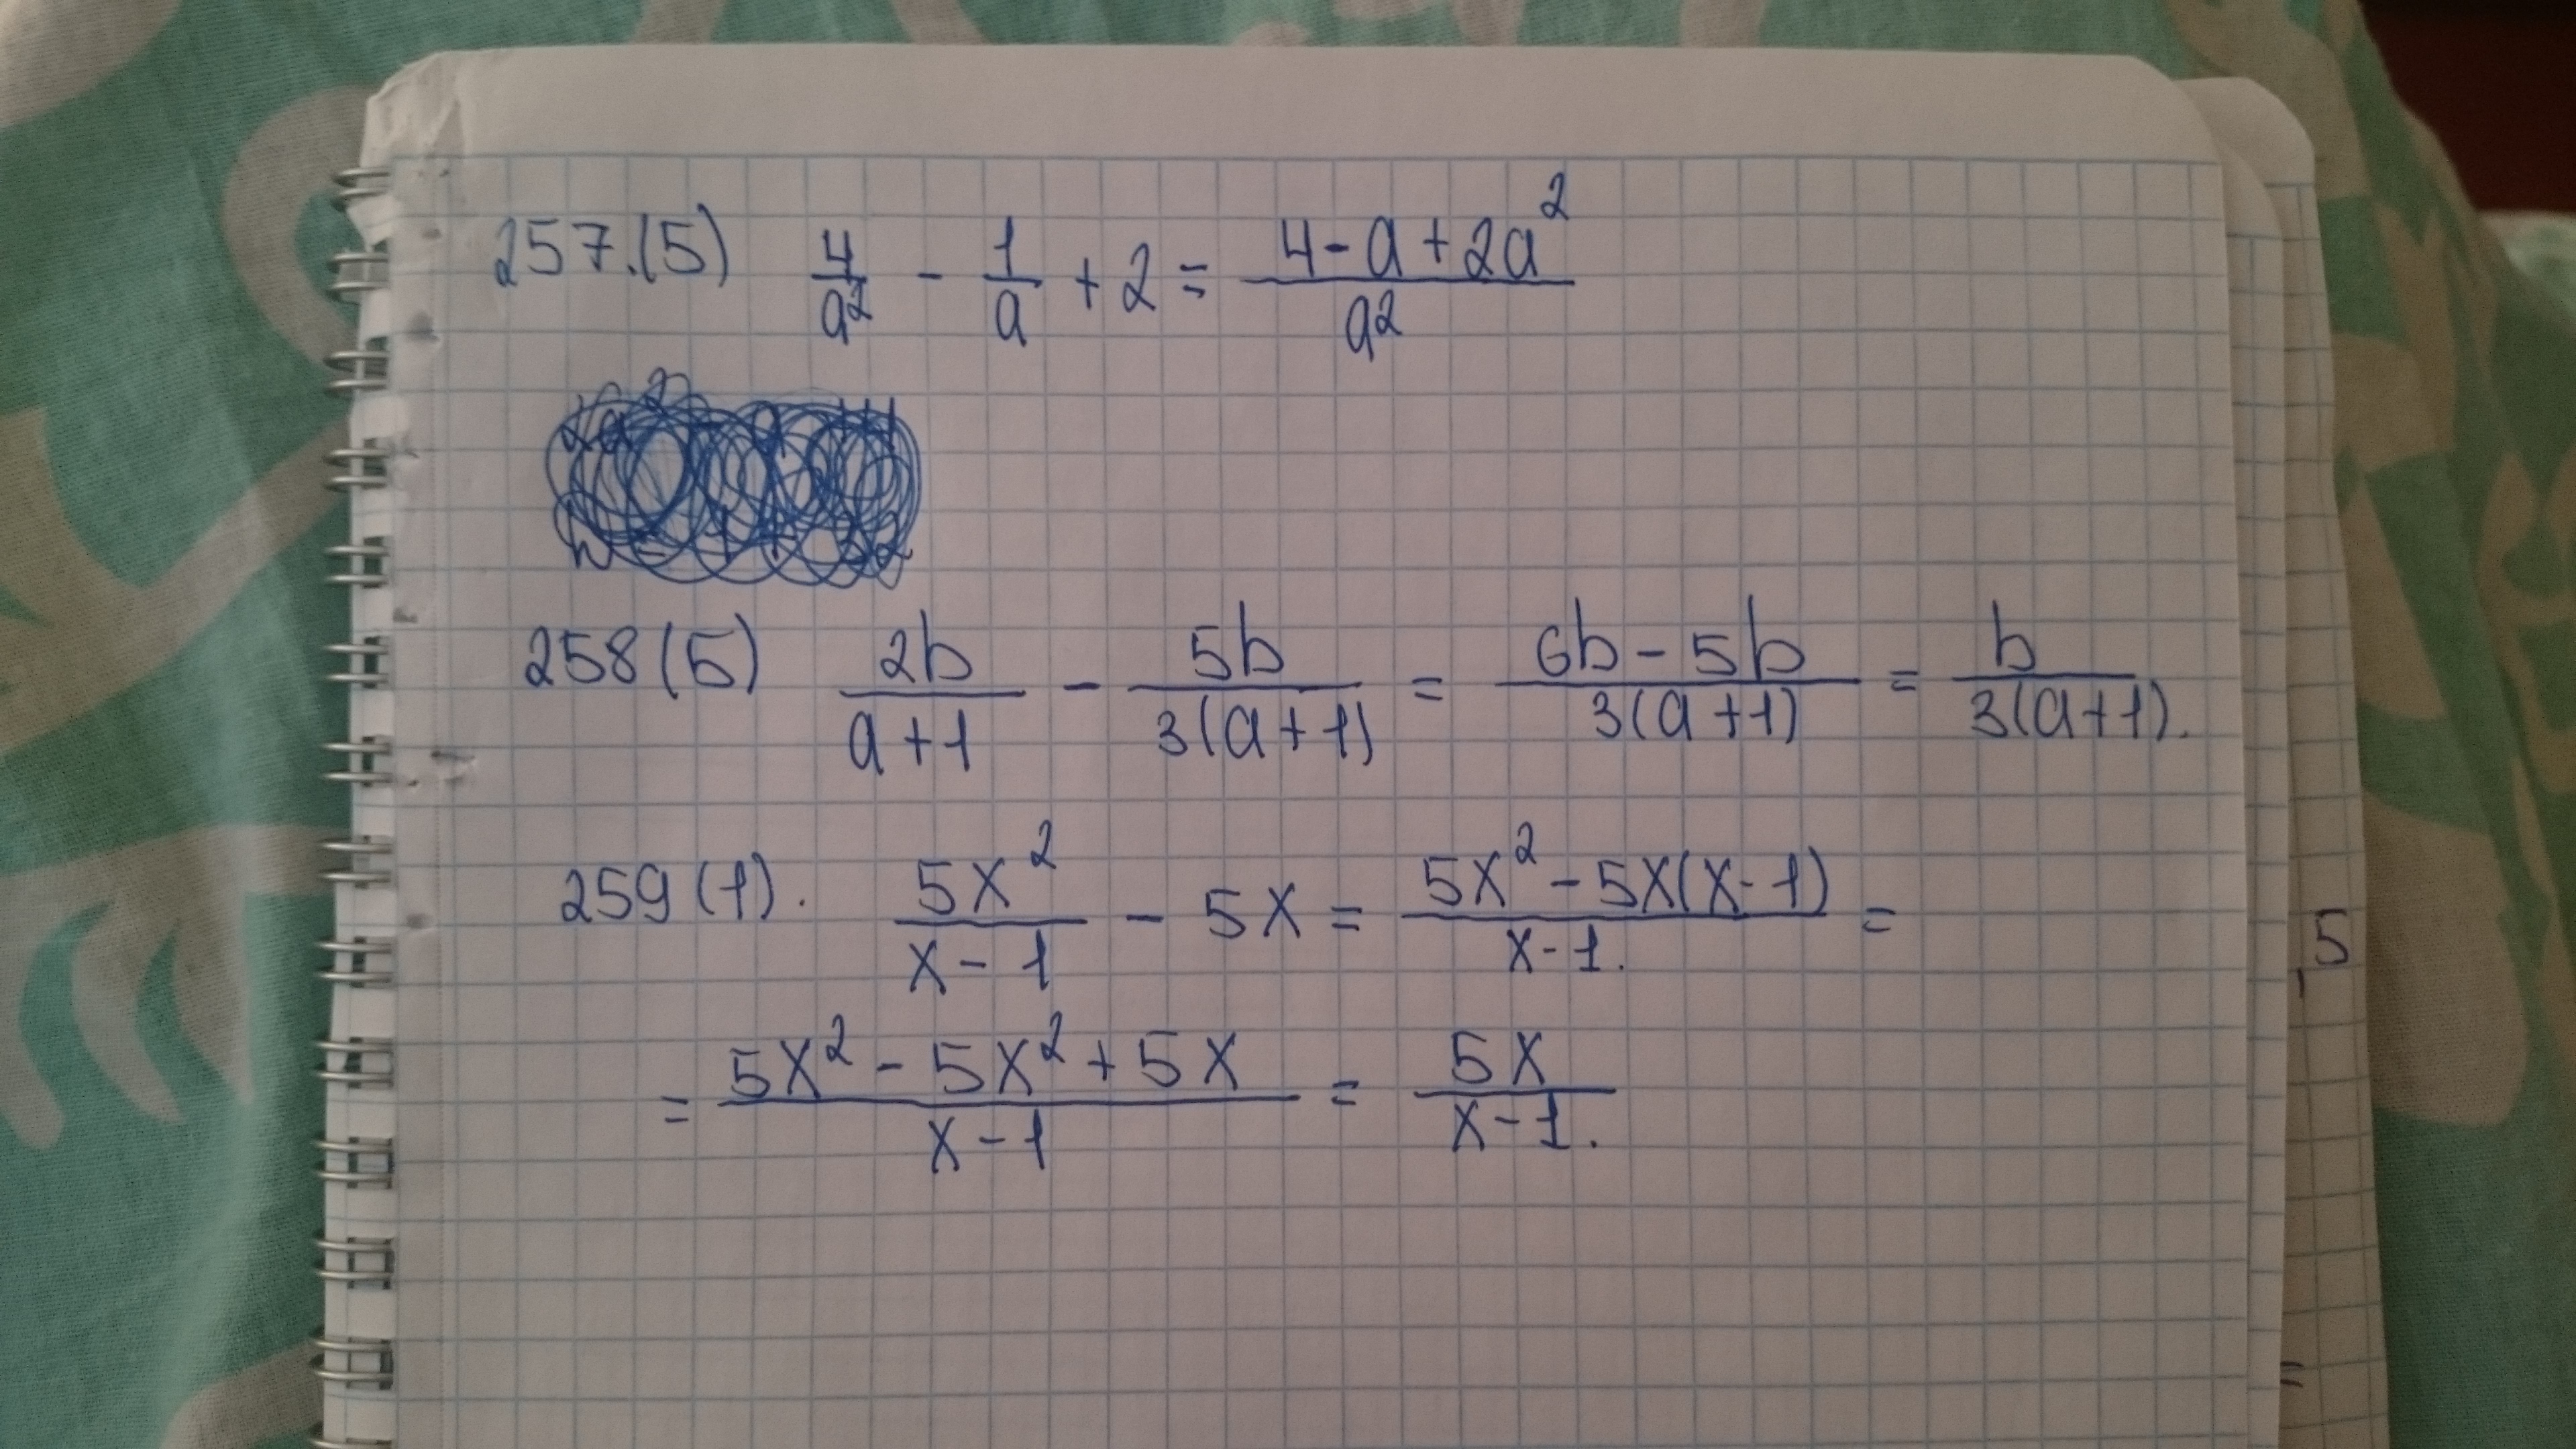 257.(5) 4/a² - 1/a + 2 = (4-a+2a²)/a²
258(5) 2b/(a+1) - 5b/(3(a+1)) = (6b-5b)/(3(a+1)) = b/(3(a+1)).
259(1). 5x²/(x-1) - 5x = (5x²-5x(x-1))/(x-1.) =
= (5x²-5x²+5x)/(x-1) = 5x/(x-1.)
,5
=